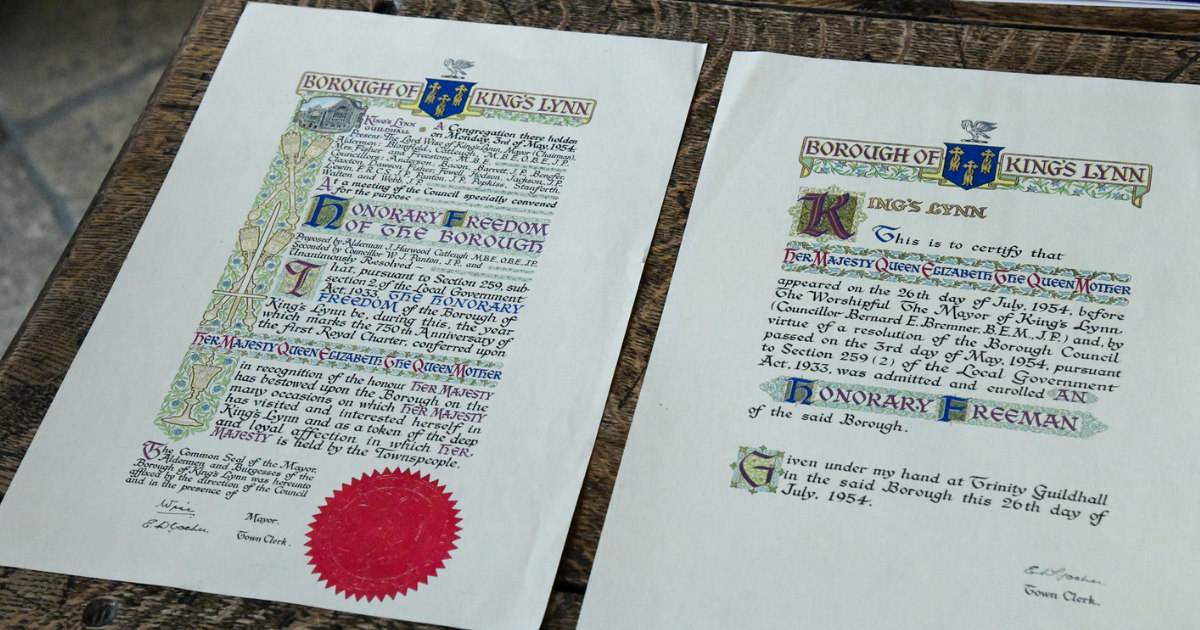 BOROUGH OF KING'S LYNN
KING'S LYNN
GUILDHALL
A Congregation there holden
on Monday, 3rd of May, 1954.
Present: The Lord Wise of King's Lynn, Mayor (Chairman),
Aldermen: Catleugh, M.B.E. O.B.E. J.P.
Mrs. Fisher and Freestone, M.B.E.
Councillors: Anderson, Bacon, Barrett, J.P. Benefer,
Fisher, Fowell, Hodson, Jackson, J.P.
F.R.C.S. J.P. Panton, J.P. Popkiss, Stanforth,
Walton and Webb, J.P.
At a meeting of the Council specially convened
for the purpose
HONORARY FREEDOM
OF THE BOROUGH
Proposed by Alderman J. Harwood Catleugh M.B.E. O.B.E. J.P.
Seconded by Councillor W. J. Panton, J.P. and
Unanimously Resolved
That, pursuant to Section 259, sub-
section 2, of the Local Government
Act, 1933, THE HONORARY
FREEDOM of the Borough of
King's Lynn be, during this, the year
which marks the 750th Anniversary of
the first Royal Charter, conferred upon
HER MAJESTY QUEEN ELIZABETH THE QUEEN MOTHER
in recognition of the honour HER MAJESTY
has bestowed upon the Borough on the
many occasions on which HER MAJESTY
has visited and interested herself in
King's Lynn and as a token of the deep
and loyal affection in which HER
MAJESTY is held by the Townspeople.
The Common Seal of the Mayor,
Aldermen and Burgesses of the
Borough of King's Lynn was hereunto
affixed by the direction of the Council
and in the presence of
Wise
Mayor.
Town Clerk.
BOROUGH OF KING'S LYNN
KING'S LYNN
This is to certify that
HER MAJESTY QUEEN ELIZABETH THE QUEEN MOTHER
appeared on the 26th day of July, 1954, before
The Worshipful The Mayor of King's Lynn,
(Councillor Bernard E. Bremner, B.E.M., J.P.) and, by
virtue of a resolution of the Borough Council
passed on the 3rd day of May, 1954, pursuant
to Section 259 (2) of the Local Government
Act, 1933, was admitted and enrolled AN
HONORARY FREEMAN
of the said Borough.
Given under my hand at Trinity Guildhall
in the said Borough this 26th day of
July, 1954.
Town Clerk.